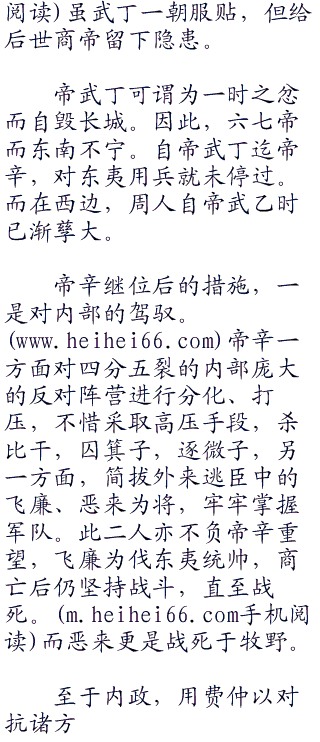 阅读)虽武丁一朝服贴，但给
后世商帝留下隐患。
帝武丁可谓为一时之忿
而自毁长城。因此，六七帝
而东南不宁。自帝武丁迄帝
辛，对东夷用兵就未停过。
而在西边，周人自帝武乙时
已渐孳大。
帝辛继位后的措施，一
是对内部的驾驭。
(www.heihei66.com)帝辛一
方面对四分五裂的内部庞大
的反对阵营进行分化、打
压，不惜采取高压手段，杀
比干，囚箕子，逐微子，另
一方面，简拔外来逃臣中的
飞廉、恶来为将，牢牢掌握
军队。此二人亦不负帝辛重
望，飞廉为伐东夷统帅，商
亡后仍坚持战斗，直至战
死。(m.heihei66.com手机阅
读)而恶来更是战死于牧野。
至于内政，用费仲以对
抗诸方